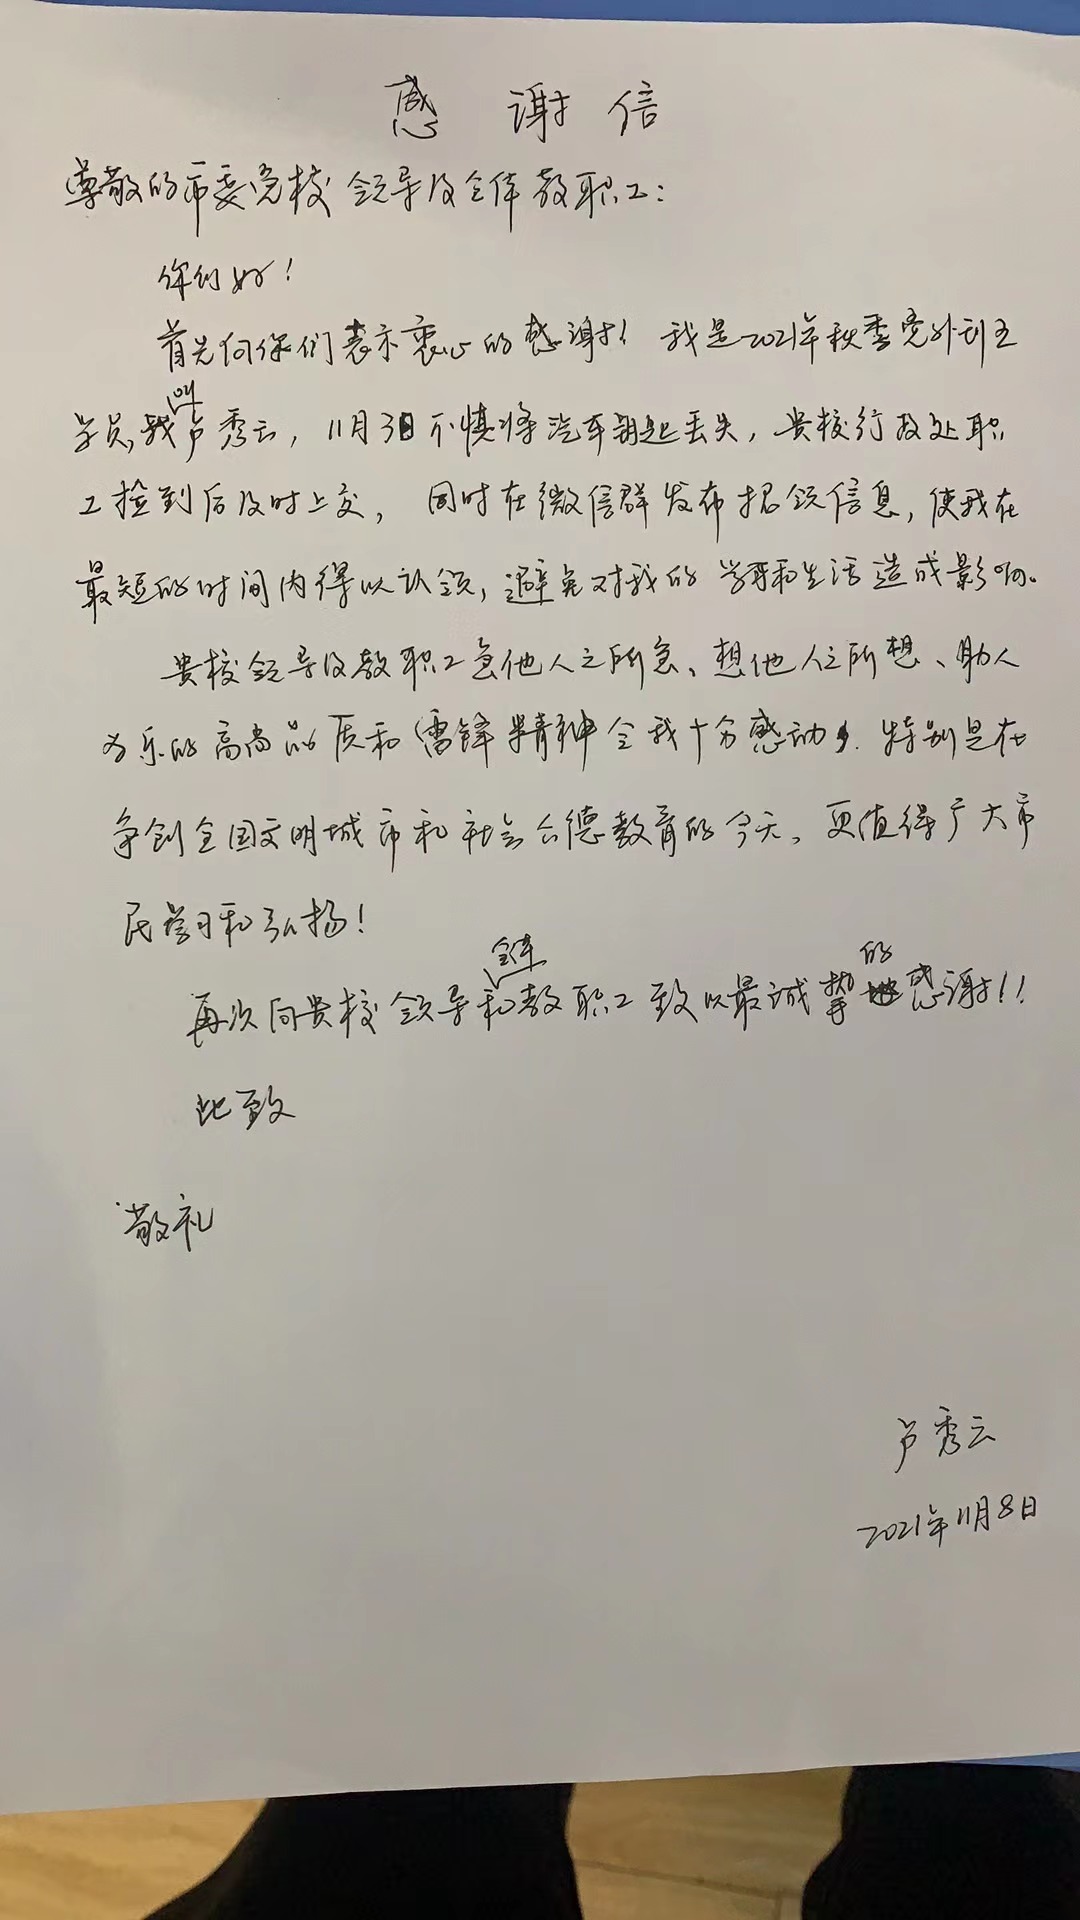 感谢信
尊敬的市委党校领导及全体教职工:
你们好!
首先向你们表示衷心的感谢! 我是2021年秋季党外
学员,我叫卢秀云, 11月3日不慎将汽车钥匙丢失, 贵校行政处职
工捡到后及时上交, 同时在微信群发布招领信息, 使我在
最短的时间内得以认领, 避免对我的学习和生活造成影响。
贵校领导及教职工急他人之所急、想他人之所想、助人
为乐的高尚品质和雷锋精神令我十分感动. 特别是在
争创全国文明城市和社会公德教育的今天, 更值得广大市
民学习和弘扬!
再次向贵校领导和全体教职工致以最诚挚的感谢!!
此致
敬礼
卢秀云
2021年11月8日